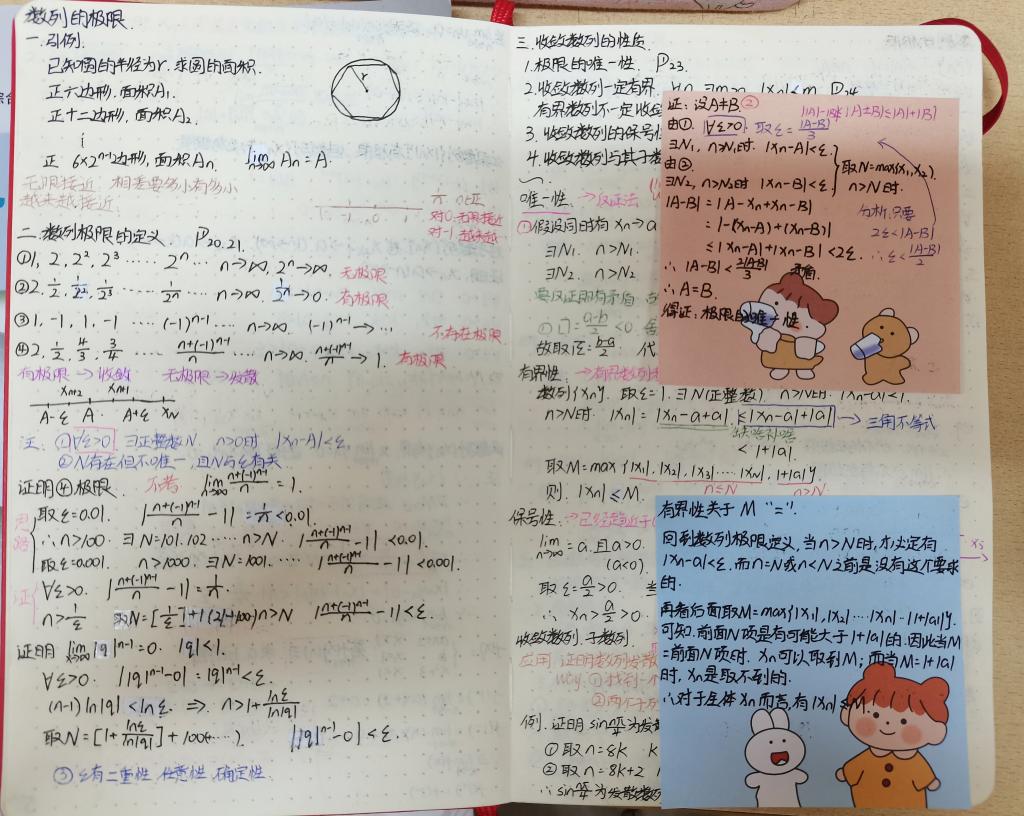 数列的极限.
一.引例.
已知圆的半径为r.求圆的面积.
r
正六边形.面积A₁.
正十二边形,面积A₂.
⋮
正 6×2ⁿ⁻¹边形,面积An. lim n→∞ An = A.
无限接近:相差要多小有多小
越来越接近:
-1 0 1
1/n n↑正
对0.无限接近
对-1.越来越
二.数列极限的定义 P20.21.
①1, 2, 2², 2³ ····· 2ⁿ ··· n→∞, 2ⁿ→∞. 无极限
②2, 1/2, 1/2², 1/2³ ····· 1/2ⁿ ···· n→∞. 1/2ⁿ→0. 有极限
③1, -1, 1, -1 ···· (-1)ⁿ⁻¹ ···· n→∞. (-1)ⁿ⁻¹→··· 不存在极限
④2, 1/2, 4/3, 3/4 ···· (n+(-1)ⁿ⁻¹)/n ···· n→∞. (n+(-1)ⁿ⁻¹)/n → 1. 有极限
有极限→收敛 无极限→发散
Xn+2 Xn+1
A-ε A A+ε XN
注: ①∀ε>0 ∃正整数N. n>0时 |Xn-A|<ε.
②N存在但不唯一,且N与ε有关
证明④极限. 不考 lim n→∞ (n+(-1)ⁿ⁻¹)/n = 1.
思路
取ε=0.01. |(n+(-1)ⁿ⁻¹)/n - 1| = 1/n < 0.01.
∴ n>100. ∃N=101.102 ····· n>N. |(n+(-1)ⁿ⁻¹)/n - 1| < 0.01.
取ε=0.001. n>1000. ∃N=1001. ···· |(n+(-1)ⁿ⁻¹)/n - 1| < 0.001.
证
∀ε>0. |(n+(-1)ⁿ⁻¹)/n - 1| = 1/n.
n>1/ε 取N=[1/ε]+1(2)(+100) n>N |(n+(-1)ⁿ⁻¹)/n - 1| < ε.
证明 lim x→∞ |q|ⁿ⁻¹=0. |q|<1.
∀ε>0. ||q|ⁿ⁻¹-0| = |q|ⁿ⁻¹<ε.
(n-1) ln|q| < lnε. ⇒ n>1+ lnε/ln|q|
取N=[1+ lnε/ln|q|]+100(····). ||q|ⁿ⁻¹-0|<ε.
③ε有二重性.任意性.确定性.
三.收敛数列的性质.
1.极限的唯一性. P23.
2.收敛数列一定有界. P24
有界数列不一定收敛
3.收敛数列的保号性
4.收敛数列与其子数
唯一性. →反证法
①假设同时有 Xn→a
∃N₁ n>N₁.
∃N₂. n>N₂
故取ε=(b-a)/2. 代
有界性. →有界数列
数列{Xn}. 取ε=1. ∃N(正整数) n>N时 |Xn-a|<1.
n>N时. |Xn| = |Xn-a+a|. ≤|Xn-a|+|a| → 三角不等式
缺啥补啥
< 1+|a|.
取M=max{|X₁|, |X₂|, |X₃| ···· |XN|, 1+|a|}.
n≤N n>N.
则. |Xn|≤M.
保号性. →已经趋近于
lim n→∞ = a. 且a>0.
(a<0).
取ε=a/2>0. 当
∴ Xn>a/2>0.
收敛数列.子数列.
应用.证明数列发散
Way. ①找到一个
②两个子
例.证明 sin nπ/4 为发散
①取n=8K K
②取n=8K+2
∴ sin nπ/4 为发散数列
证:设A≠B ②
||A|-|B|≤|A±B|≤|A|+|B|
由①. ∀ε>0. 取ε=|A-B|/3
∃N₁, n>N₁时. |Xn-A|<ε.
由②
∃N₂, n>N₂时 |Xn-B|<ε
取N=max(x₁,x₂).
n>N时.
|A-B| = |A-Xn+Xn-B|
= |-(Xn-A)+(Xn-B)|
≤ |Xn-A|+|Xn-B| <2ε.
分析.只要
2ε<|A-B|
∴ ε<|A-B|/2
∴ |A-B| < 2|A-B|/3 矛盾.
∴ A=B.
得证:极限的唯一性
有界性关于 M "=".
回到数列极限定义,当n>N时,才决定有
|Xn-a|<ε.而n=N或n<N之前是没有这个要求
的.
再看后面取M=max{|X₁|, |X₂| ··· |XN| ·1+|a|}.
可知.前面N项是有可能大于1+|a|的.因此当M
=前面N项时. Xn可以取到M;而当M=1+|a|
时, Xn是取不到的.
∴对于全体Xn而言,有|Xn|≤M.
X₃